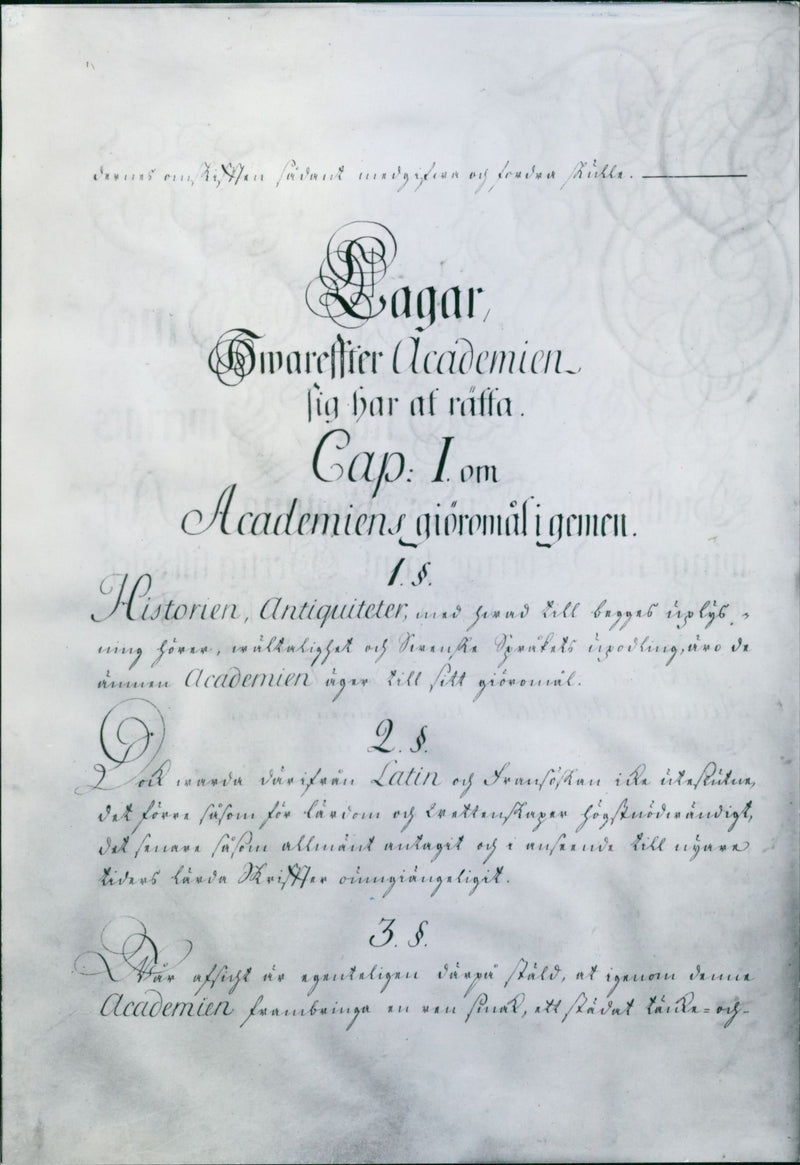 dernes omskifften sådant medgifwa och fordra skulle.
Lagar,
Hwareffter Academien
sig har at rätta.
Cap: I. om
Academiens giöromål i gemen.
1. §.
Historien, Antiquiteter, med hwad till begges uplys-
ning hörer, wältalighet och Swenske Språkets upodling, äro de
ämnen Academien äger till sitt giöromål.
2. §.
Dock warda därifrån Latin och Fransöskan icke uteslutne,
det förre såsom för lärdom och wettenskaper högstnödwändigt,
det senare såsom allmänt antagit och i anseende till nyare
tiders lärda Skriffter oumgiängeligit.
3. §.
Wår afsicht är egenteligen därpå stäld, at igenom denne
Academien frambringa en ren smak, ett städat täncke= och